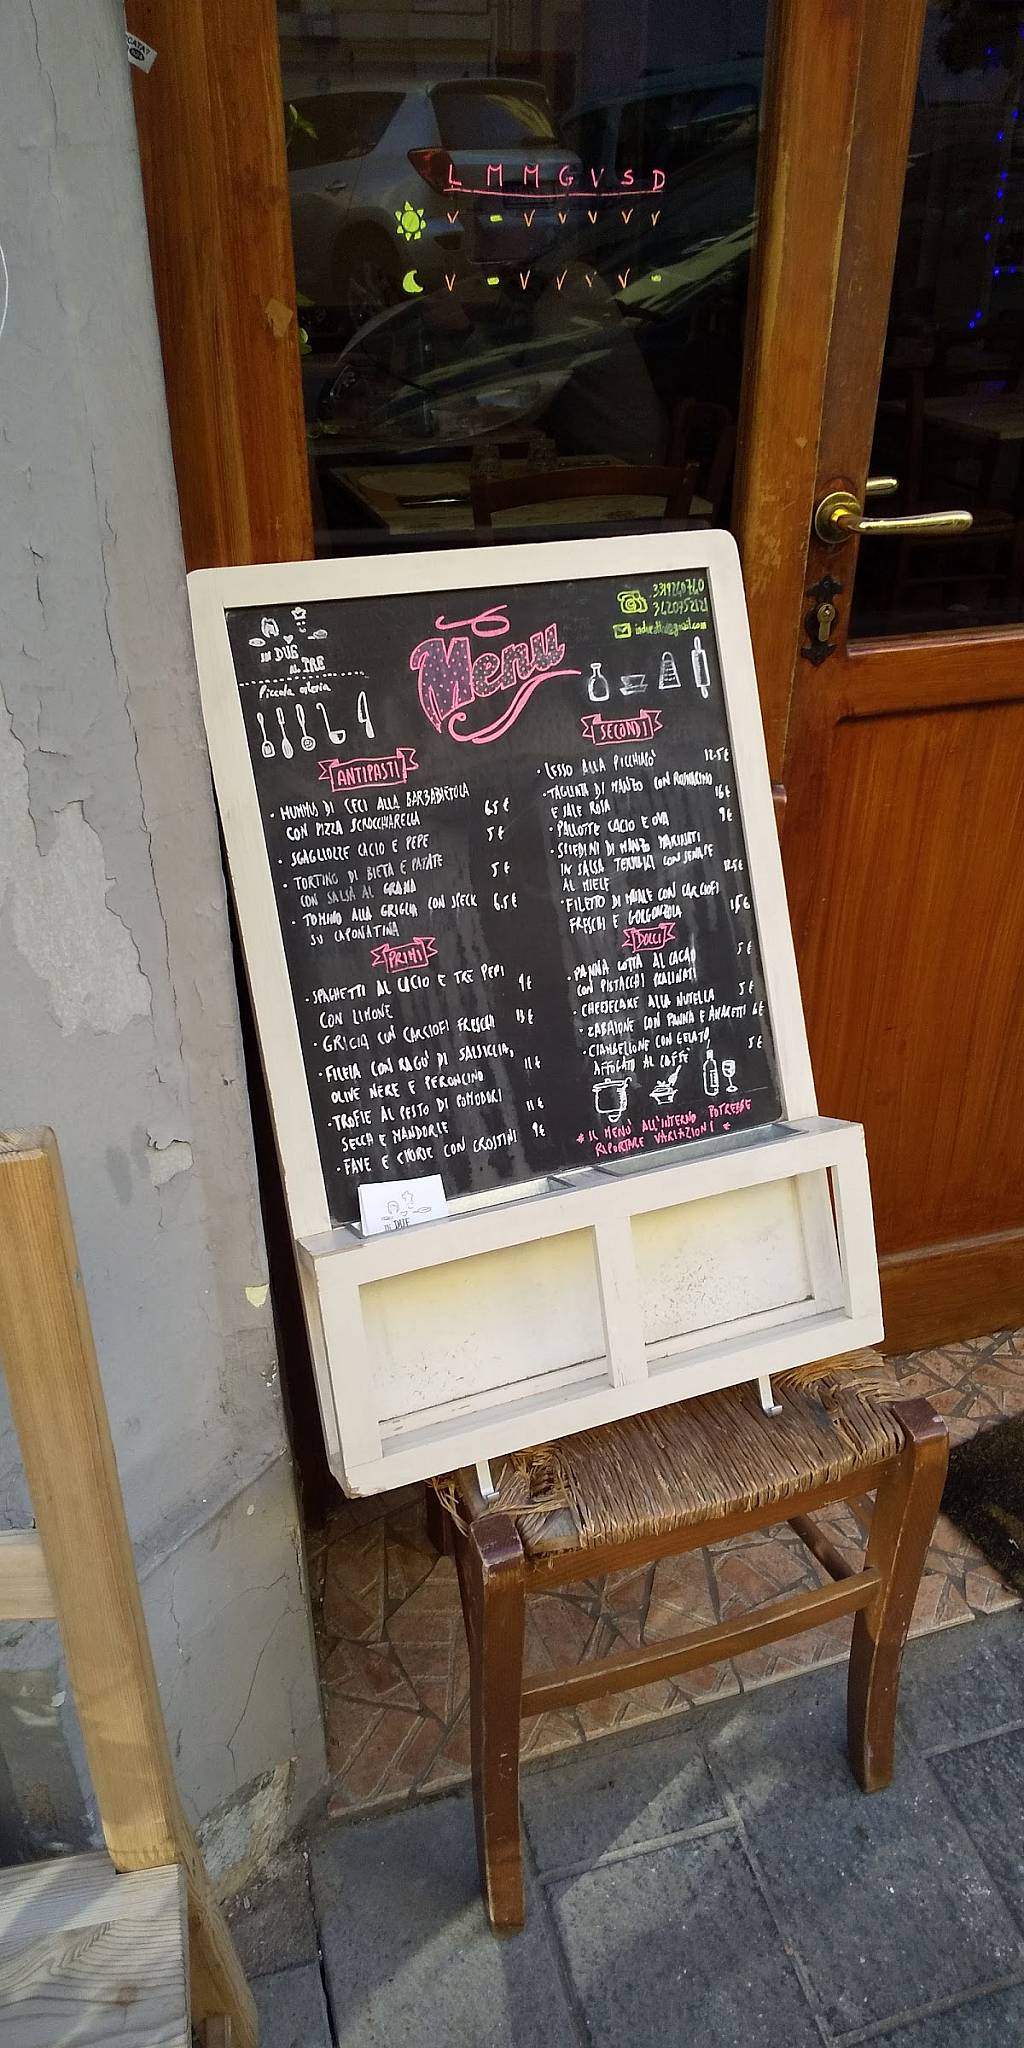 L M M G V S D
V - V V V V V
V - V V V V -
3428752121
IN DUE
AL TRE
Piccola osteria
Menu
ANTIPASTI
• HUMMUS DI CECI ALLA BARBABIETOLA
CON PIZZA SCROCCHIARELLA 6.5 €
• SGAGLIOZZE CACIO E PEPE 5 €
• TORTINO DI BIETA E PATATE
CON SALSA AL GRANA 5 €
• TOMINO ALLA GRIGLIA CON SPECK 6.5 €
SU CAPONATINA
PRIMI
• SPAGHETTI AL CACIO E TRE PEPI 9 €
CON LIMONE
• GRICIA CON CARCIOFI FRESCHI 13 €
• FILEJA CON RAGU' DI SALSICCIA,
OLIVE NERE E PERONCINO 11 €
• TROFIE AL PESTO DI POMODORI
SECCHI E MANDORLE 11 €
• FAVE E CICORIE CON CROSTINI 9 €
SECONDI
• LESSO ALLA PICCHIAPO' 12.5 €
• TAGLIATA DI MANZO CON ROSMARINO
E SALE ROSA 16 €
• PALLOTTE CACIO E OVA 9 €
• SPIEDINI DI MANZO MARINATI
IN SALSA TERIYAKI CON SENAPE
AL MIELE 12.5 €
• FILETTO DI MAIALE CON CARCIOFI
FRESCHI E GORGONZOLA €
DOLCI
• PANNA COTTA AL CACAO 5 €
CON PISTACCHI PRALINATI
• CHEESECAKE ALLA NUTELLA 5 €
• ZABAIONE CON PANNA E AMARETTI 6 €
• CIAMBELLONE CON GELATO 5 €
AFFOGATO AL CAFFE'
* IL MENU' ALL'INTERNO POTREBBE
RIPORTARE VARIAZIONI *
IN DUE